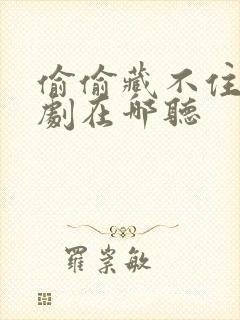 偷偷藏不住
劇在哪聽
羅崇敏